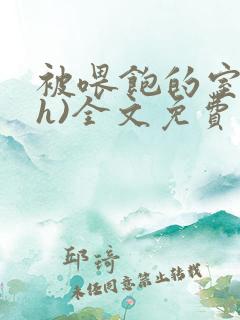 被喂飽的室
h)全文免費
邱琦
未经同意禁止转载